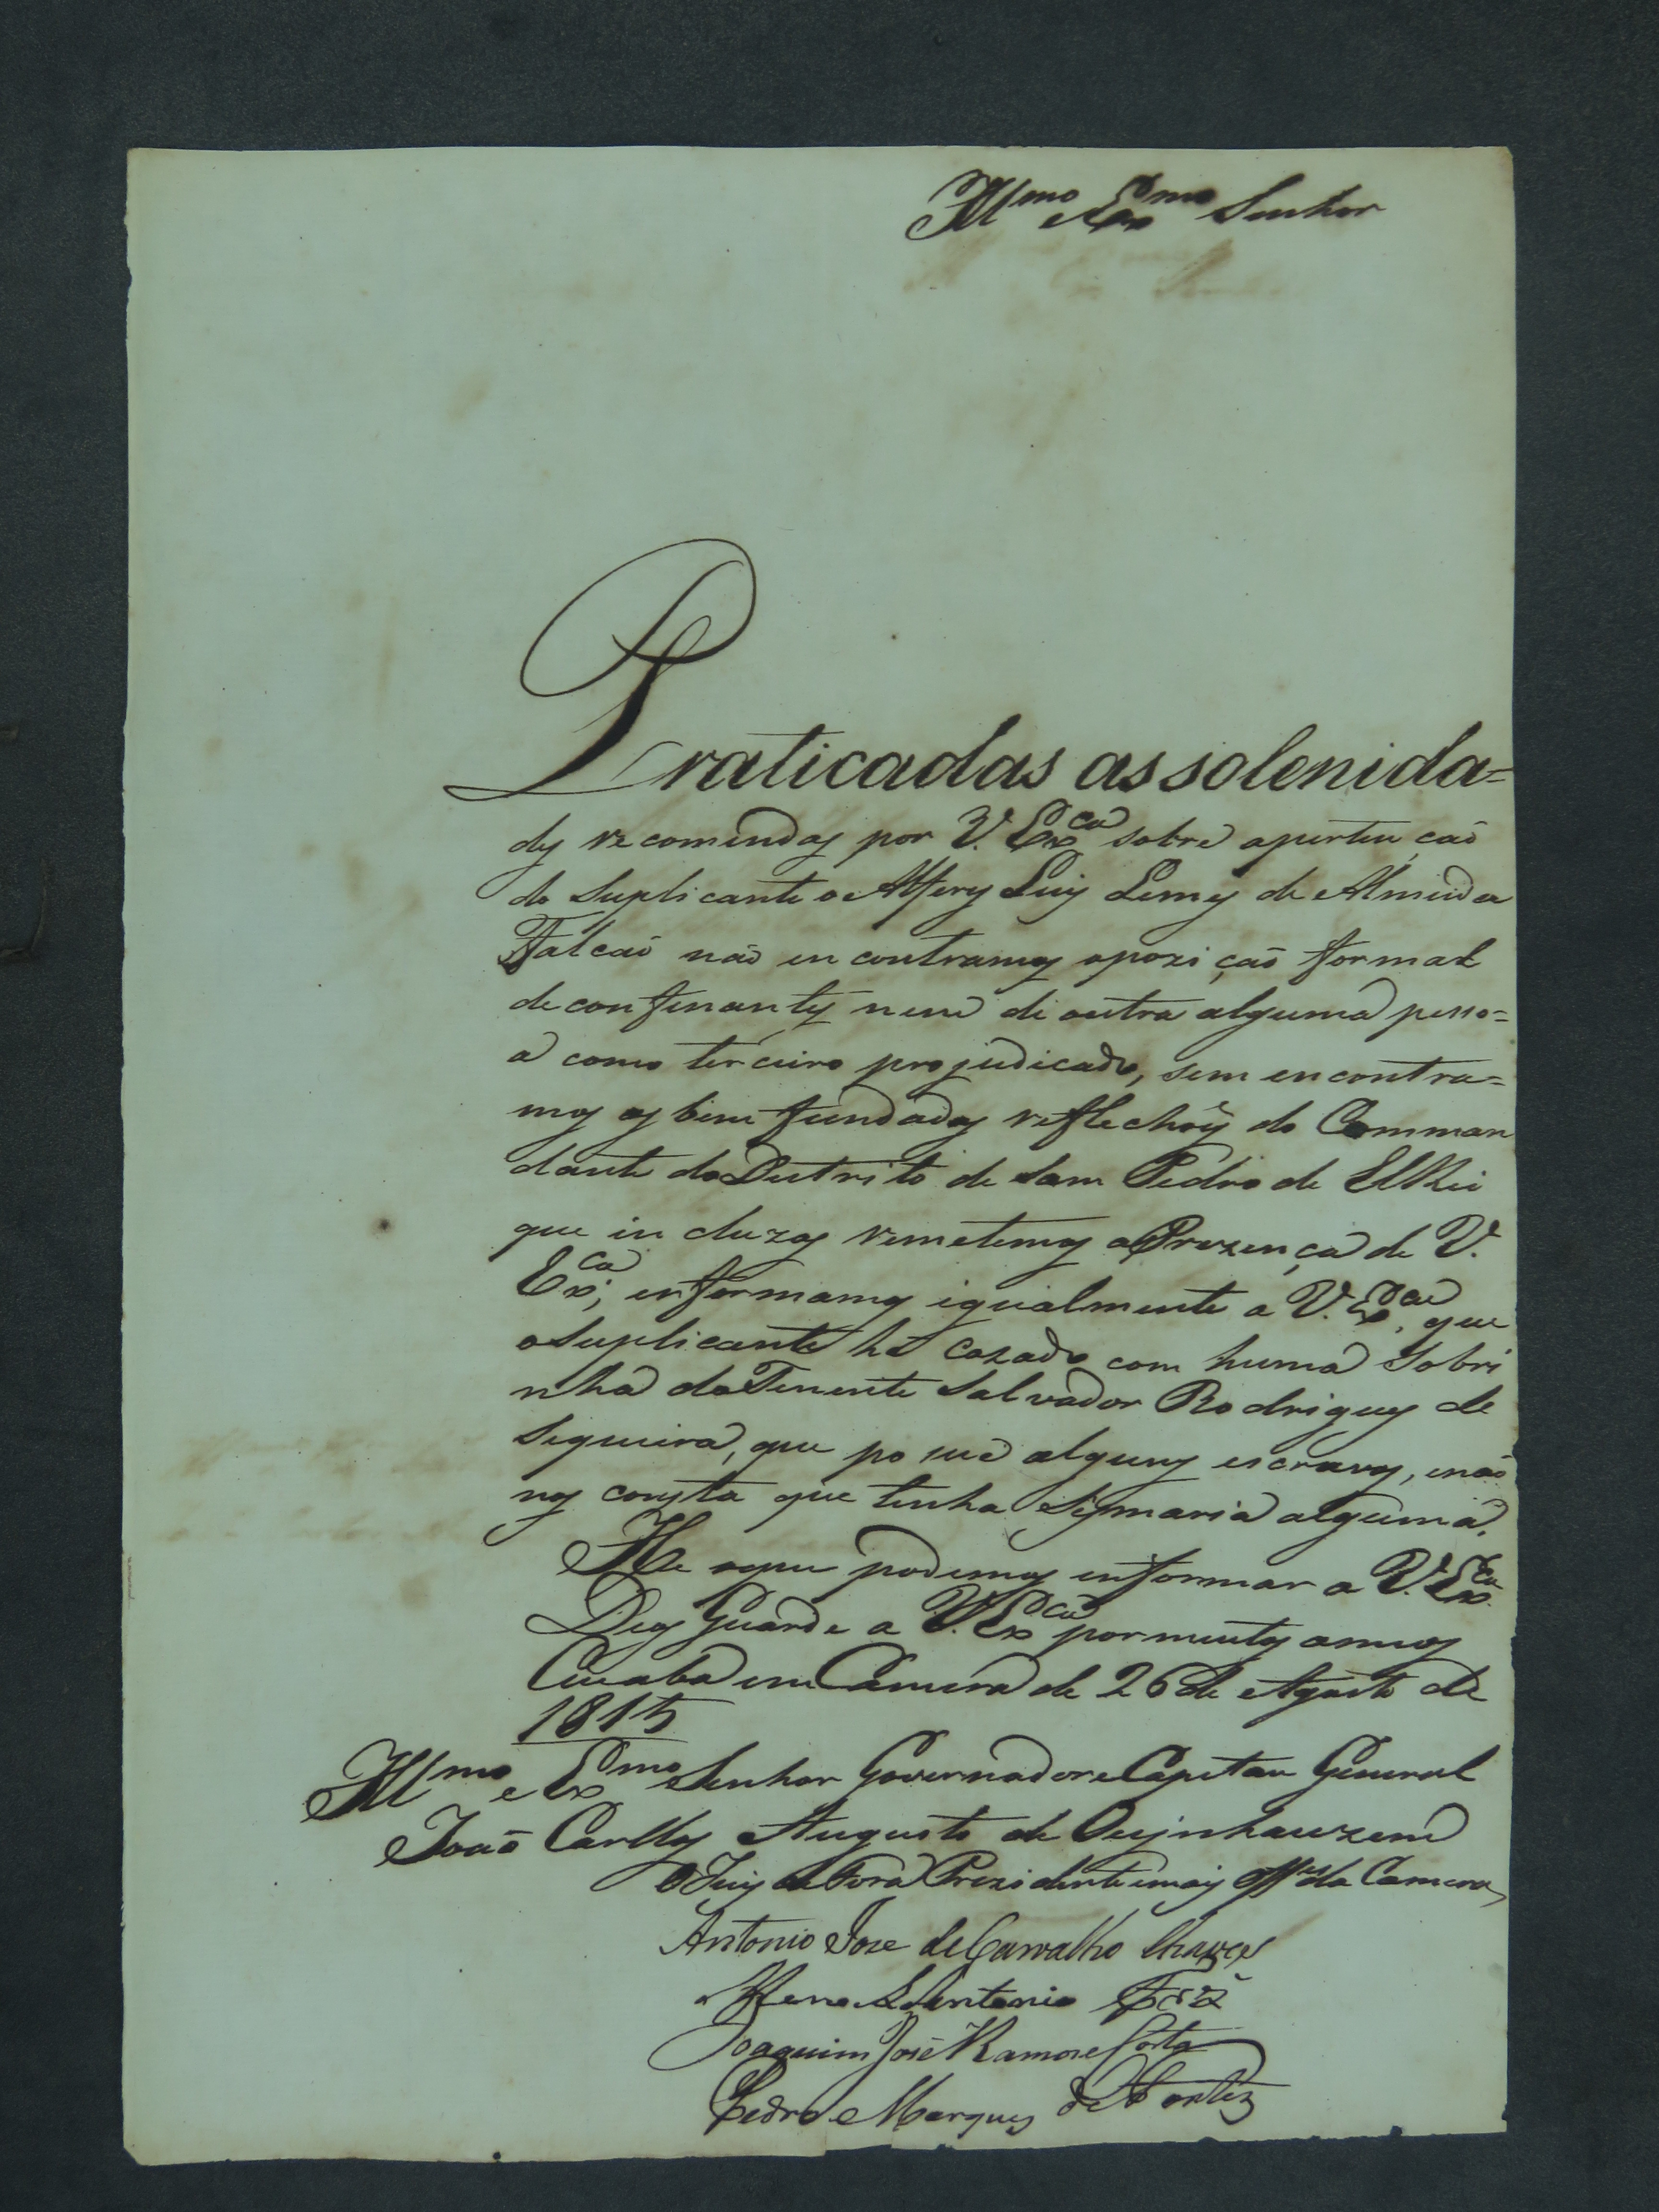 Ill.mo e Ex.mo Senhor
Praticadas as solenida=
des recomendas por V. Ex.ca sobre apertenção
do Suplicante o Alferes Luis Lemes de Almeida
Falcaõ não encontramos opozição formal
de confinantes nem di outra alguma pesso=
a como terceiro projudicado, sem encontra=
mos as bem fundadas reflechões do Comman
dante do Destrito de Sam Pedro de ElRei
que incluzas remetemos a Prezença de V.
Ex.ca; enformamos igualmente a V. Ex.ca, que
o Suplicante he cazado com huma Sobri
nha do Tenente Salvador Rodrigues de
Siqueira, que posue alguns escravos, enaõ
nos consta que tenha Sesmaria alguma.
He oque podemos enformar a V. Ex.ca
Deos Guarde a V. Ex.ca por muitos annos
Cuiaba em Camera de 26 de Agosto de
1815
Ill.mo e Ex.mo Senhor Governador e Capitan General
Joaõ Carllos Augusto de Oeijnhauzem
O Juis de Fora Prezidente emais Off.es da Camera
Antonio Joze de Carvalho Chaves
Antonio
Joaquim José Ramos e Costa
Pedro Marques